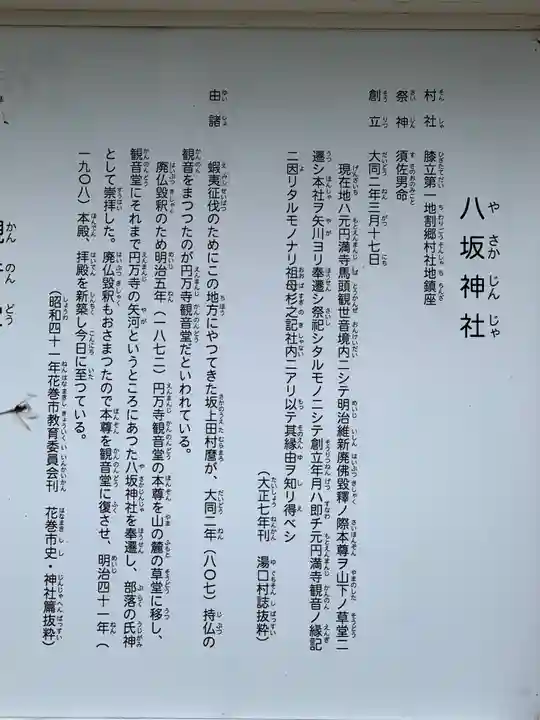 八坂神社
村社　膝立第一地割郷村社地鎮座
祭神　須佐男命
創立　大同二年三月十七日
現在地ハ元円満寺馬頭観世音境内ニシテ明治維新廃佛毀釋ノ際本尊ヲ山下ノ草堂ニ
遷シ本社ヲ矢川ヨリ奉遷シ祭祀シタルモノニシテ創立年月ハ即チ元円満寺観音ノ縁記
ニ因リタルモノナリ祖母杉之記社内ニアリ以テ其縁由ヲ知リ得ベシ
（大正七年刊　湯口村誌抜粋）
由諸
蝦夷征伐のためにこの地方にやつてきた坂上田村麿が、大同二年（八〇七）持仏の
観音をまつつたのが円万寺観音堂だといわれている。
廃仏毀釈のため明治五年（一八七二）円万寺観音堂の本尊を山の麓の草堂に移し、
観音堂にそれまで円万寺の矢河というところにあつた八坂神社を奉遷し、部落の氏神
として崇拝した。廃仏毀釈もおさまつたので本尊を観音堂に復させ、明治四十一年（
一九〇八）本殿、拝殿を新築し今日に至つている。
（昭和四十一年花巻市教育委員会刊　花巻市史・神社篇抜粋）